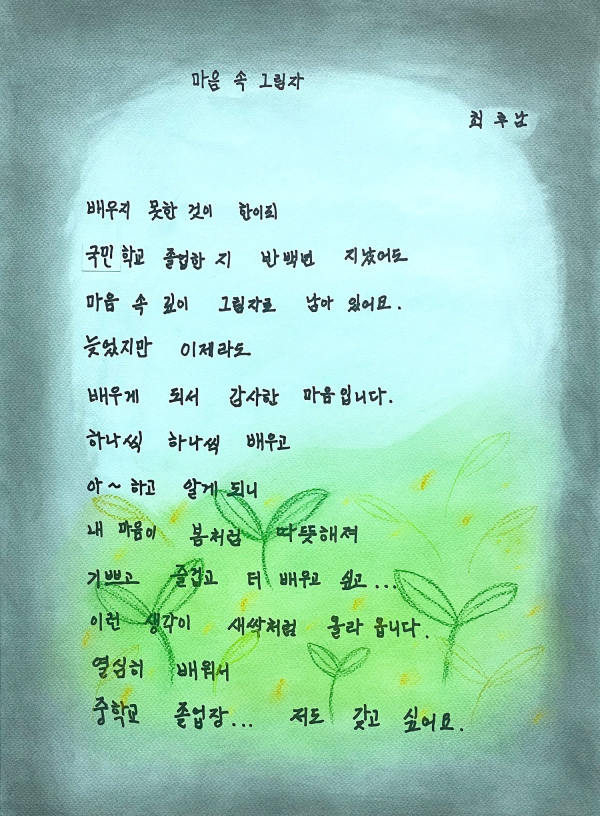 마음 속 그림자
최 후 남
배우지 못한 것이 한이되
국민 학교 졸업한 지 반백년 지났어도
마음 속 깊이 그림자로 남아 있어요.
늦었지만 이제라도
배우게 되서 감사한 마음입니다.
하나씩 하나씩 배우고
아~ 하고 알게 되니
내 마음이 봄처럼 따뜻해져
기쁘고 즐겁고 더 배우고 싶고...
이런 생각이 새싹처럼 올라 옵니다.
열심히 배워서
중학교 졸업장... 저도 갖고 싶어요.